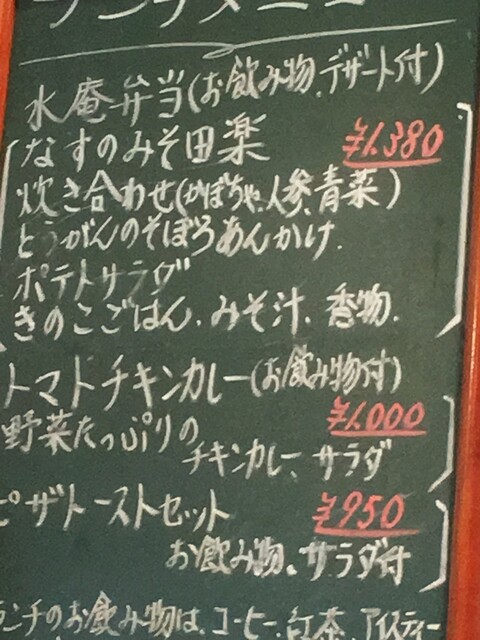 ランチメニュー
水庵弁当(お飲み物、デザート付)
なすのみそ田楽 ¥1,380
炊き合わせ(かぼちゃ、人参、青菜)
とうがんのそぼろあんかけ.
ポテトサラダ
きのこごはん、みそ汁、香物.
トマトチキンカレー(お飲み物付)
¥1,000
野菜たっぷりの
チキンカレー、サラダ
ピザトーストセット ¥950
お飲み物、サラダ付
ランチのお飲み物は、コーヒー、紅茶、アイスティー